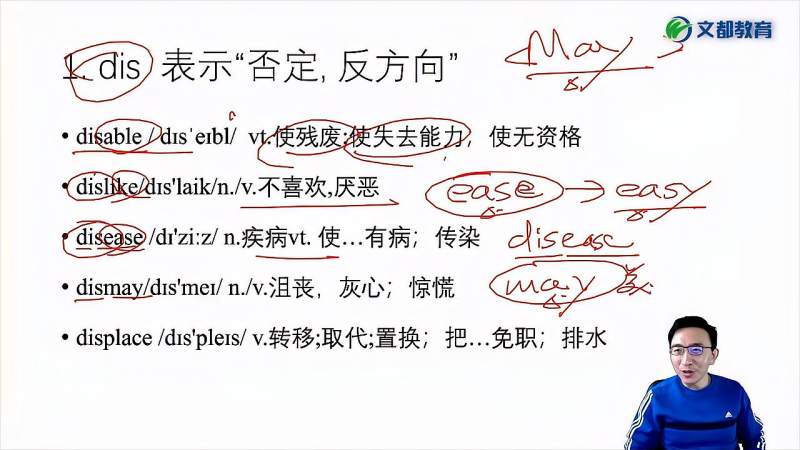 文都教育
May
1. dis 表示“否定, 反方向”
• disable / dɪsˈeɪbl/ vt.使残废;使失去能力；使无资格
• dislike/dɪs'laik/n./v.不喜欢,厌恶
ease → easy
• disease /dɪ'ziːz/ n.疾病vt. 使…有病；传染
disease
• dismay/dɪs'meɪ/ n./v.沮丧，灰心；惊慌
may
• displace /dɪs'pleɪs/ v.转移;取代;置换；把…免职；排水